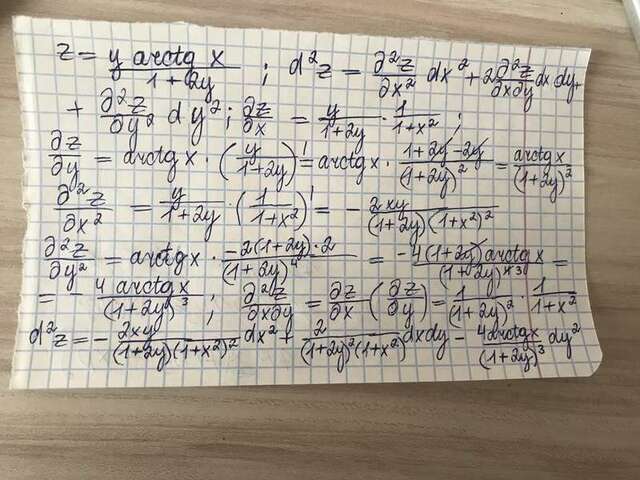 z = y arctg x / (1+2y) ; d²z = ∂²z/∂x² dx² + 2 ∂²z/∂x∂y dx dy +
+ ∂²z/∂y² dy² ; ∂z/∂x = y/(1+2y) · 1/(1+x²) ;
∂z/∂y = arctg x · (y/(1+2y))' = arctg x · (1+2y-2y)/(1+2y)² = arctg x/(1+2y)²
∂²z/∂x² = y/(1+2y) · (1/(1+x²))' = - 2xy/((1+2y)(1+x²)²)
∂²z/∂y² = arctg x · -2(1+2y)·2/(1+2y)⁴ = - 4(1+2y) arctg x/(1+2y)⁴ =
= - 4 arctg x/(1+2y)³ ; ∂²z/∂x∂y = ∂z/∂x (∂z/∂y) = 1/(1+2y)² · 1/(1+x²)
d²z = - 2xy/((1+2y)(1+x²)²) dx² + 2/((1+2y)²(1+x²)) dx dy - 4 arctg x/(1+2y)³ dy²